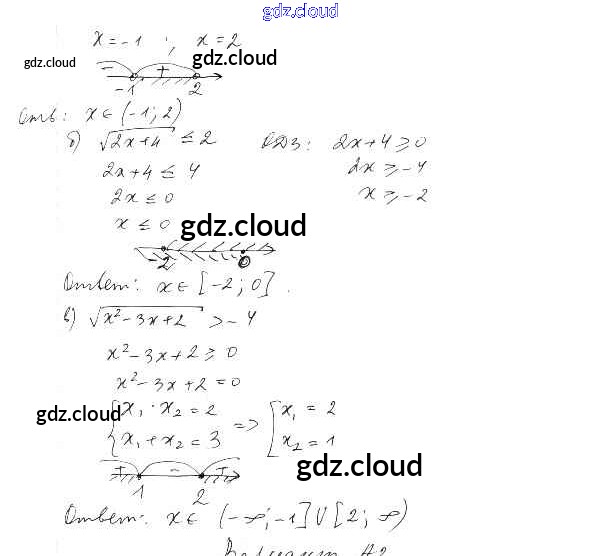 gdz.cloud
x = -1 ; x = 2
gdz.cloud gdz.cloud
- +
-1 2
Отв: x ∈ (-1; 2)
б) √2x+4 ≤ 2 ОДЗ: 2x+4 ≥ 0
2x+4 ≤ 4 2x ≥ -4
2x ≤ 0 x ≥ -2
x ≤ 0 gdz.cloud
-2 0
Ответ: x ∈ [-2; 0].
в) √x²-3x+2 > -4
x²-3x+2 ≥ 0
x²-3x+2 = 0
gdz.cloud {x₁ · x₂ = 2 => [x₁ = 2
{x₁+x₂ = 3 [x₂ = 1
+ - + gdz.cloud
1 2
Ответ: x ∈ (-∞; -1] U [2; ∞)